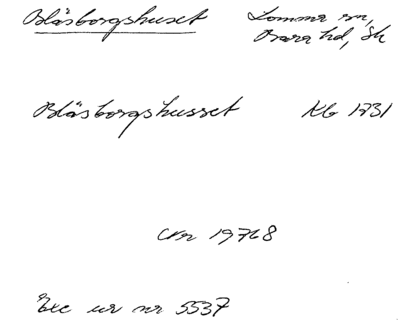 Blåsborgshuset Lomma sn,
Bara hd, Sk
Blåsborgshusset Kb 1731
19768
Exc ur nr 5537